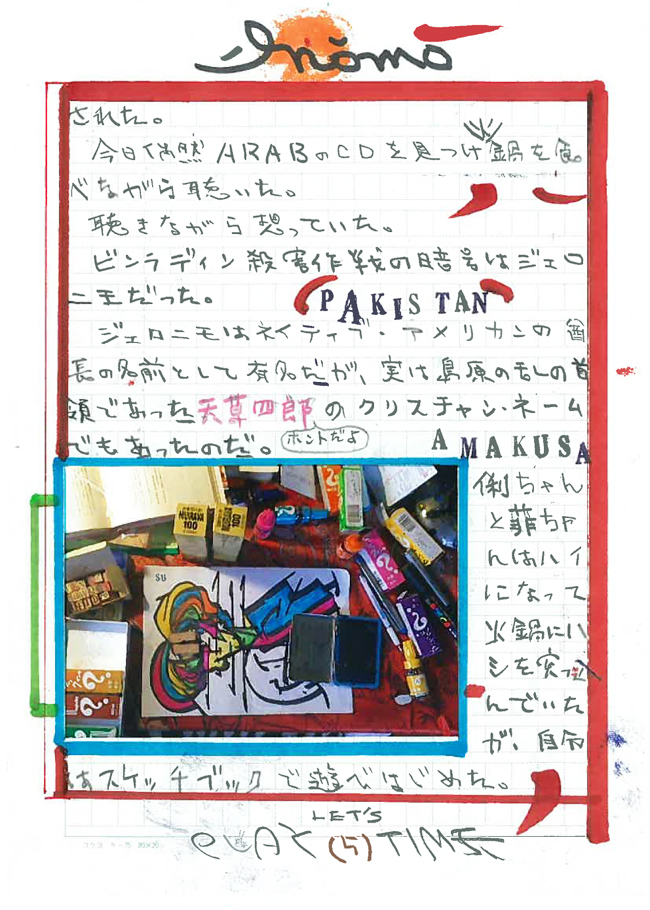 Inomo
された。
今日偶然ARABのCDを見つけ火鍋を食
べながら聴いた。
聴きながら想っていた。
ビンラディン殺害作戦の暗号はジェロ
ニモだった。
(PAKISTAN)
ジェロニモはネイティブ・アメリカンの酋
長の名前として有名だが、実は島原の乱の首
領であった天草四郎のクリスチャン・ネーム
でもあったのだ。
ホントだよ
AMAKUSA
俐ちゃん
と菲ちゃ
んはハイ
になって
火鍋にハ
シを突っ込
んでいた
が、自分
はスケッチブックで遊べはじめた。
LET'S
PLAY (5) TIME
MURAYA
100
100
SU